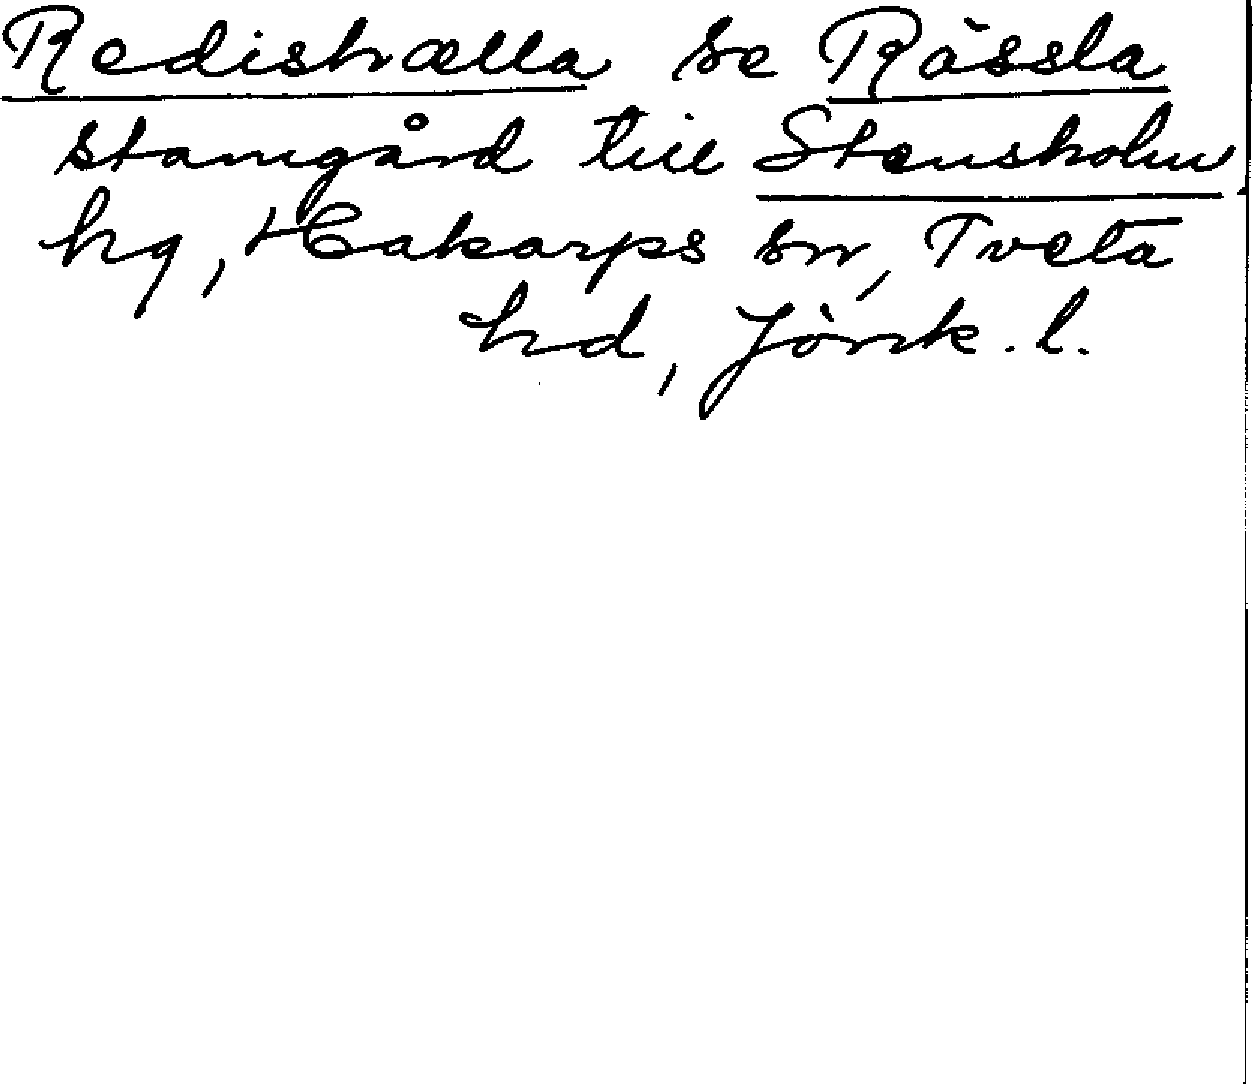 Redishælla se Rässla
stamgård till Stensholm,
hg, Hakarps sn, Tveta
hd, Jönk. l.